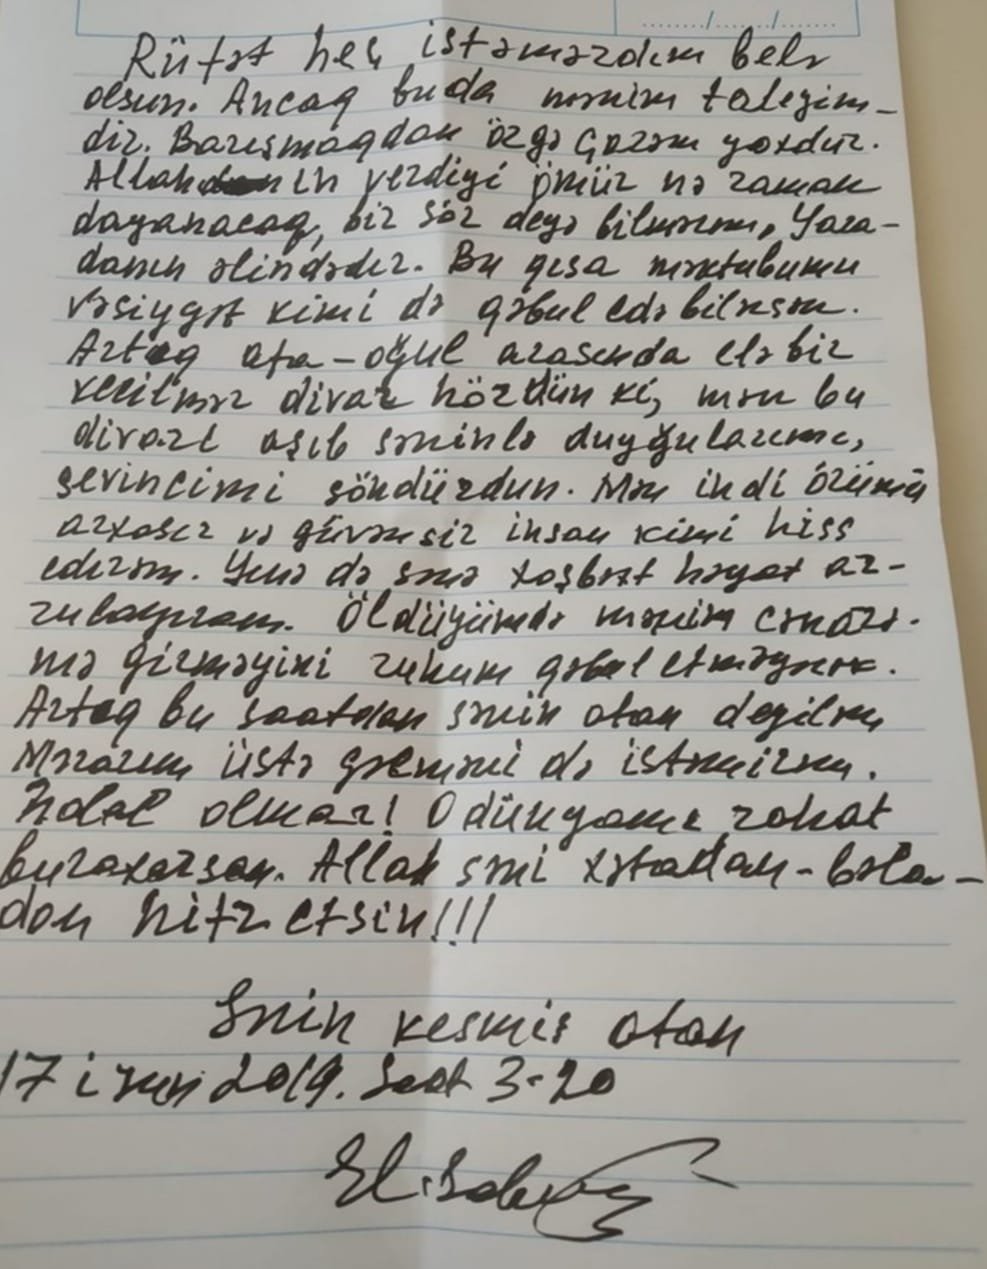 Rüfət heç istəməzdim belə
olsun. Ancaq bu da mənim taleyim-
dir. Barışmaqdan özgə çarəm yoxdur.
Allahın verdiyi ömür nə zaman
dayanacaq, bir söz deyə bilmərəm, Yara-
danın əlindədir. Bu qısa məktubumu
vəsiyyət kimi də qəbul edə bilərsən.
Artıq ata-oğul arasında elə bir
keçilməz divar hördün ki, mən bu
divarı aşıb səninlə duyğularımı,
sevincimi söndürdün. Mən indi özümü
arxasız və güvənsiz insan kimi hiss
edirəm. Yenə də sənə xoşbəxt həyat ar-
zulayıram. Öldüyümdə mənim cənazə-
mə girməyini ruhum qəbul etməyəcək.
Artıq bu saatdan sənin atan deyiləm
Məzarım üstə gəlməni də istəmirəm.
Halal olmaz! O dünyamı rahat
buraxarsan. Allah səni xətadan-bəla-
dan hifz etsin!!!
Sənin keçmiş atan
17 iyun 2019. Saat 3-20